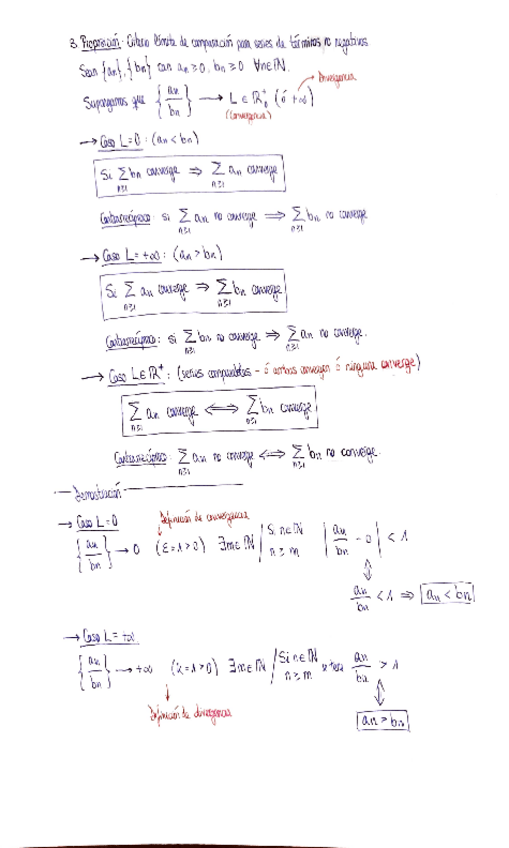 3. Proposición - Criterio límite de comparación para series de términos no negativos
Sean {an}, {bn} con an ≥ 0, bn ≥ 0 ∀n∈ℕ.
Divergencia
Supongamos que {an/bn} → L ∈ ℝ₀⁺ (ó +∞)
(Convergencia)
→ Caso L=0: (an < bn)
Si Σ bn converge ⇒ Σ an converge
n≥1 n≥1
Contrarrecíproco: si Σ an no converge ⇒ Σ bn no converge
n≥1 n≥1
→ Caso L=+∞: (an > bn)
Si Σ an converge ⇒ Σ bn converge
n≥1 n≥1
Contrarrecíproco: si Σ bn no converge ⇒ Σ an no converge.
n≥1 n≥1
→ Caso L∈ℝ⁺: (series comparables - ó ambas convergen ó ninguna converge)
Σ an converge ⟺ Σ bn converge
n≥1 n≥1
Contrarrecíproco: Σ an no converge ⟺ Σ bn no converge.
n≥1 n≥1
Demostración
→ Caso L=0
Definición de convergencia
{an/bn} → 0 (ε=1>0) ∃m∈ℕ / Si n∈ℕ n≥m |an/bn - 0| < 1
⇕
an/bn < 1 ⇒ an < bn
→ Caso L=+∞
{an/bn} → +∞ (k=1>0) ∃m∈ℕ / Si n∈ℕ n≥m an/bn > 1
⇕
Definición de divergencia
an > bn